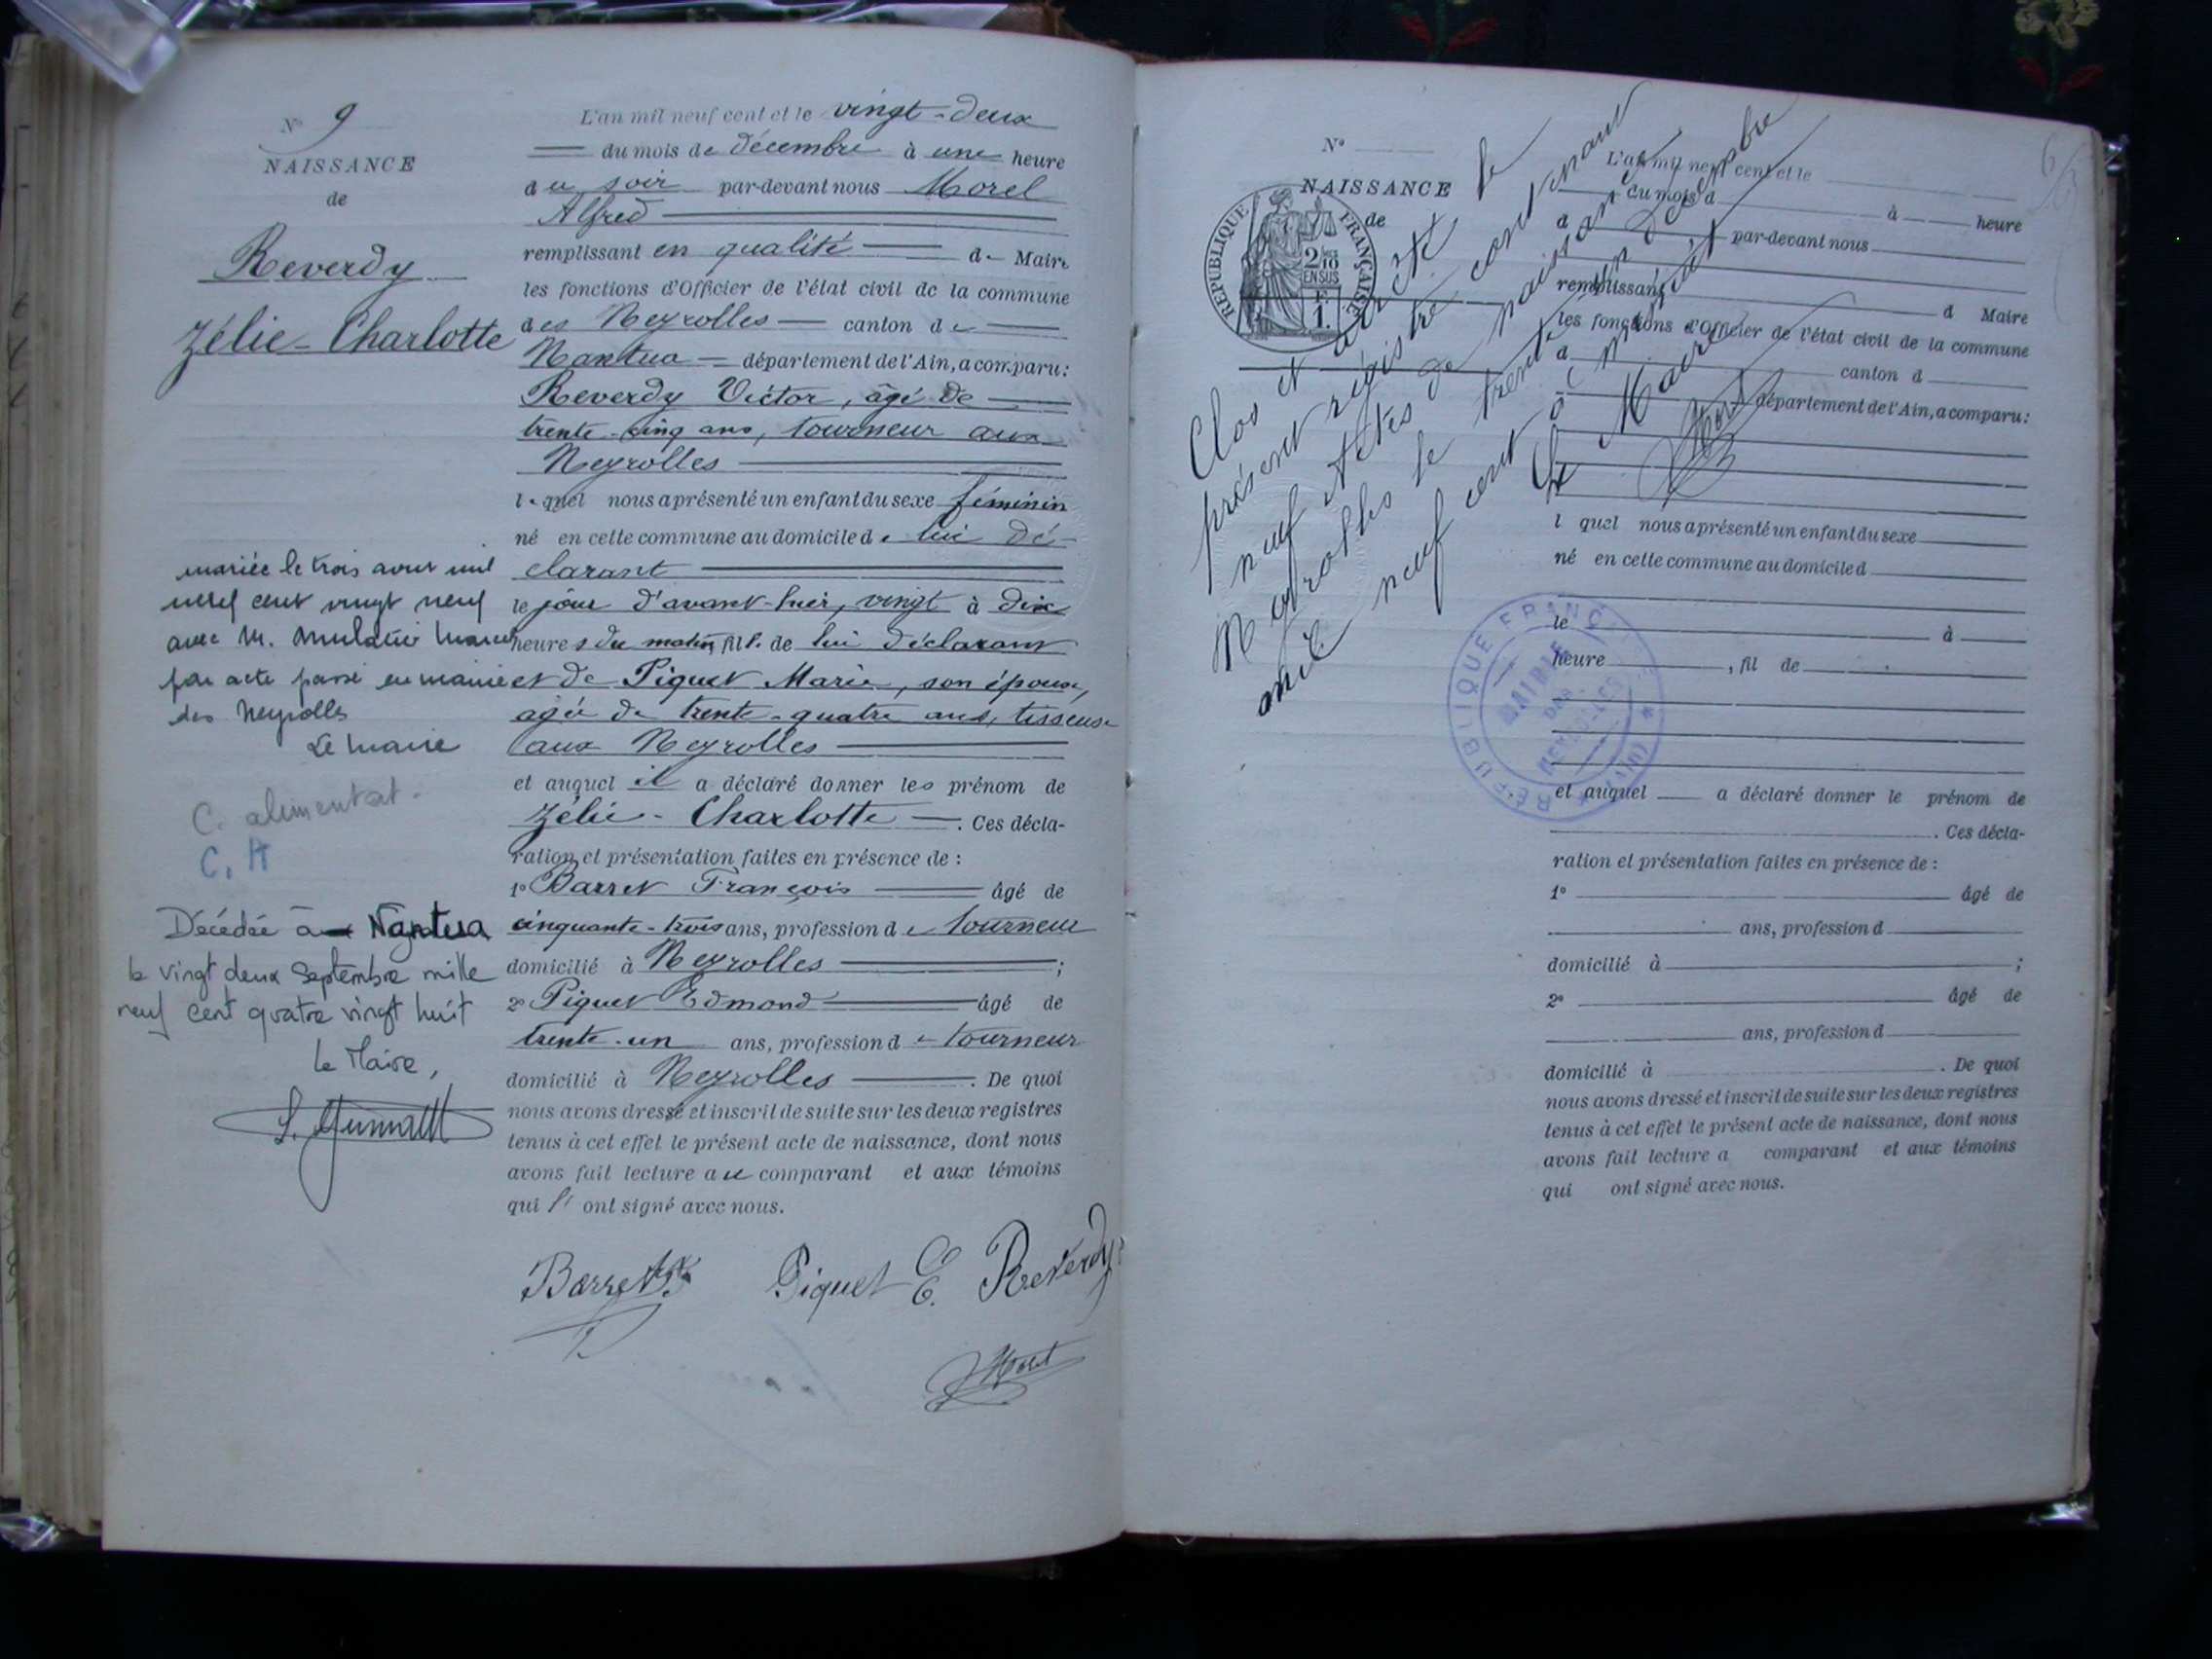 N° 9
NAISSANCE
de
Reverdy
Zélie-Charlotte
mariée le trois avril mil
neuf cent vingt neuf
avec M. Marcel
par acte passé en mairie
des Neyrolles
Le maire
C. alimentat.
C. A
Décédée à Nantua
le vingt deux Septembre mille
neuf cent quatre vingt huit
Le Maire,
L'an mil neuf cent et le vingt-deux
du mois de décembre à une heure
du soir par-devant nous Morel
Alfred
remplissant en qualité de Maire
les fonctions d'Officier de l'état civil de la commune
des Neyrolles canton de
Nantua département de l'Ain, a comparu:
Reverdy Victor, âgé de
trente-cinq ans, tourneur aux
Neyrolles
lequel nous a présenté un enfant du sexe féminin
né en cette commune au domicile de lui dé-
clarant
le jour d'avant-hier, vingt à dix
heures du matin, fill. de lui déclarant
et de Piquet Marie, son épouse,
agée de trente-quatre ans, tisseuse
aux Neyrolles
et auquel il a déclaré donner les prénom de
Zélie-Charlotte. Ces décla-
ration et présentation faites en présence de :
1° Barret François âgé de
cinquante-trois ans, profession de tourneur
domicilié à Neyrolles ;
2° Piquet Edmond âgé de
trente-un ans, profession de tourneur
domicilié à Neyrolles. De quoi
nous avons dressé et inscrit de suite sur les deux registres
tenus à cet effet le présent acte de naissance, dont nous
avons fait lecture au comparant et aux témoins
qui l' ont signé avec nous.
Barret Piquet E. Reverdy
Morel
N°
NAISSANCE
de
RÉPUBLIQUE FRANÇAISE
2/10 EN SUS
1 F.
Clos et arrêté le
présent régistre contenant
neuf actes de naissance
Neyrolles le trente un décembre
mil neuf cent à minuit
Le Maire
Morel
L'an mil neuf cent et le
du mois d à heure
d par-devant nous
remplissant d Maire
les fonctions d'Officier de l'état civil de la commune
d canton d
département de l'Ain, a comparu:
l quel nous a présenté un enfant du sexe
né en cette commune au domicile d
le à
heure , fil de
RÉPUBLIQUE FRANÇAISE
MAIRIE
DES
NEYROLLES
(AIN)
et auquel a déclaré donner le prénom de
. Ces décla-
ration et présentation faites en présence de :
1° âgé de
ans, profession d
domicilié à ;
2° âgé de
ans, profession d
domicilié à . De quoi
nous avons dressé et inscrit de suite sur les deux registres
tenus à cet effet le présent acte de naissance, dont nous
avons fait lecture a comparant et aux témoins
qui ont signé avec nous.